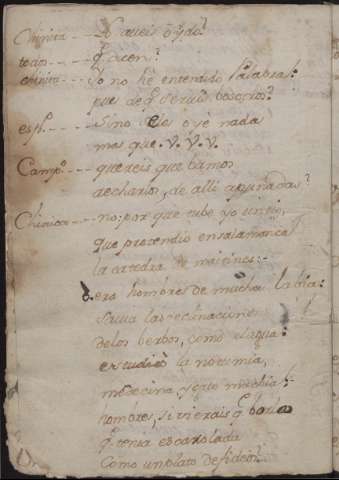 Chinita --- Lo aveis oydo?
todos ---- q.e dicen?
chinita --- Yo no hé entendido palabra:
pues de q.e servis vosotros?
esp.o ---- Sino se les oyé nada
mas que. V. V. V.
Camp.o --- quereis que bamos
aecharlos, de alli apuñadas?
Chinica --- no: por que tube yo un tio,
que pretendió en salamanca
la catedra de maitines:
era hombre de mucha labia:
savia las declinaciones
de los berbos, como el agua:
estudió la notomia,
medecina y quto machia:
hombres, si vierais q.e barba
q.e tenia escarolada
como un plato de fideos!